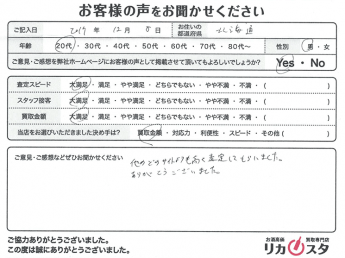 お客様の声をお聞かせください
ご記入日 2019年 12月 8日 お住いの都道府県 北海道
年齢 20代・30代・40代・50代・60代・70代・80代〜 性別 男・女
ご意見・ご感想を弊社ホームページにお客様の声として掲載させて頂いてもよろしいでしょうか? Yes・No
査定スピード 大満足・満足・やや満足・どちらでもない・やや不満・不満・( )
スタッフ接客 大満足・満足・やや満足・どちらでもない・やや不満・不満・( )
買取金額 大満足・満足・やや満足・どちらでもない・やや不満・不満・( )
当店をお選びいただきました決め手は? 買取金額・対応力・利便性・スピード・その他( )
ご意見・ご感想などぜひお聞かせください。
他のどのサイトよりも高く査定してもらいました。
ありがとうございました。
ご協力ありがとうございました。
この度は誠にありがとうございました。
お酒高価 買取専門店
リカスタ